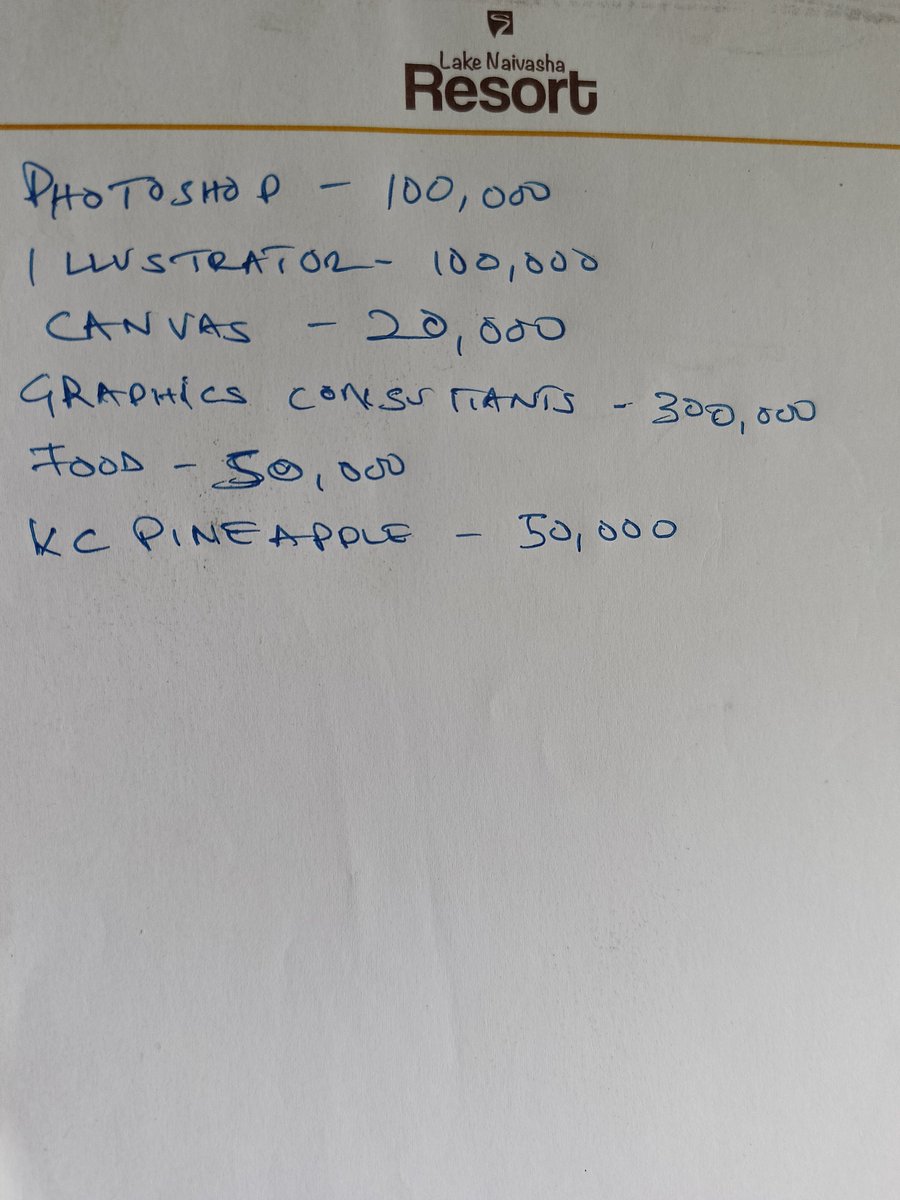 Lake Naivasha
Resort
PHOTOSHOP - 100,000
ILLUSTRATOR - 100,000
CANVAS - 20,000
GRAPHICS CONSULTANTS - 300,000
FOOD - 50,000
KC PINEAPPLE - 50,000